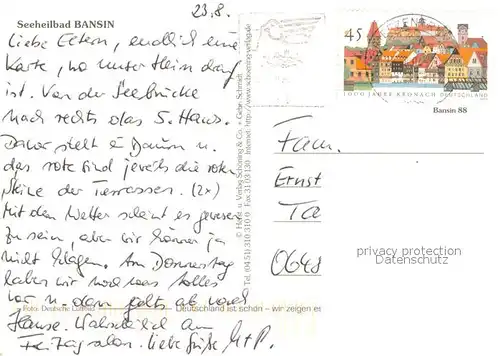 23.8.
Seeheilbad BANSIN
Liebe Eltern, endlich eine
Karte, wo unser Heim drauf
ist. Von der Seebrücke
nach rechts das 5. Haus.
Davor steht 'n Baum u.
das rote sind jeweils die roten
der Terrassen. (2x)
Mit dem Wetter scheint es gewesen
zu sein, aber wir können ja
nicht klagen. Am Donnerstag
haben wir noch was tolles
vor u. dann geht's ab nach
Hause. Wahrscheinlich am
Freitag schon. Liebe Grüße M+P.
Foto: Deutsche Luftbild
Deutschland ist schön – wir zeigen es
© Horst u. Verlag Schöning & Co. + Gebr. Schmidt
Tel. (04 51) 310 310-0 Fax 31 03 130 Internet: http://www.schoening-verlag.de
45
1000 JAHRE KRONACH DEUTSCHLAND
Bansin 88
Fam.
Ernst
Ta
0648
privacy protection
Datenschutz